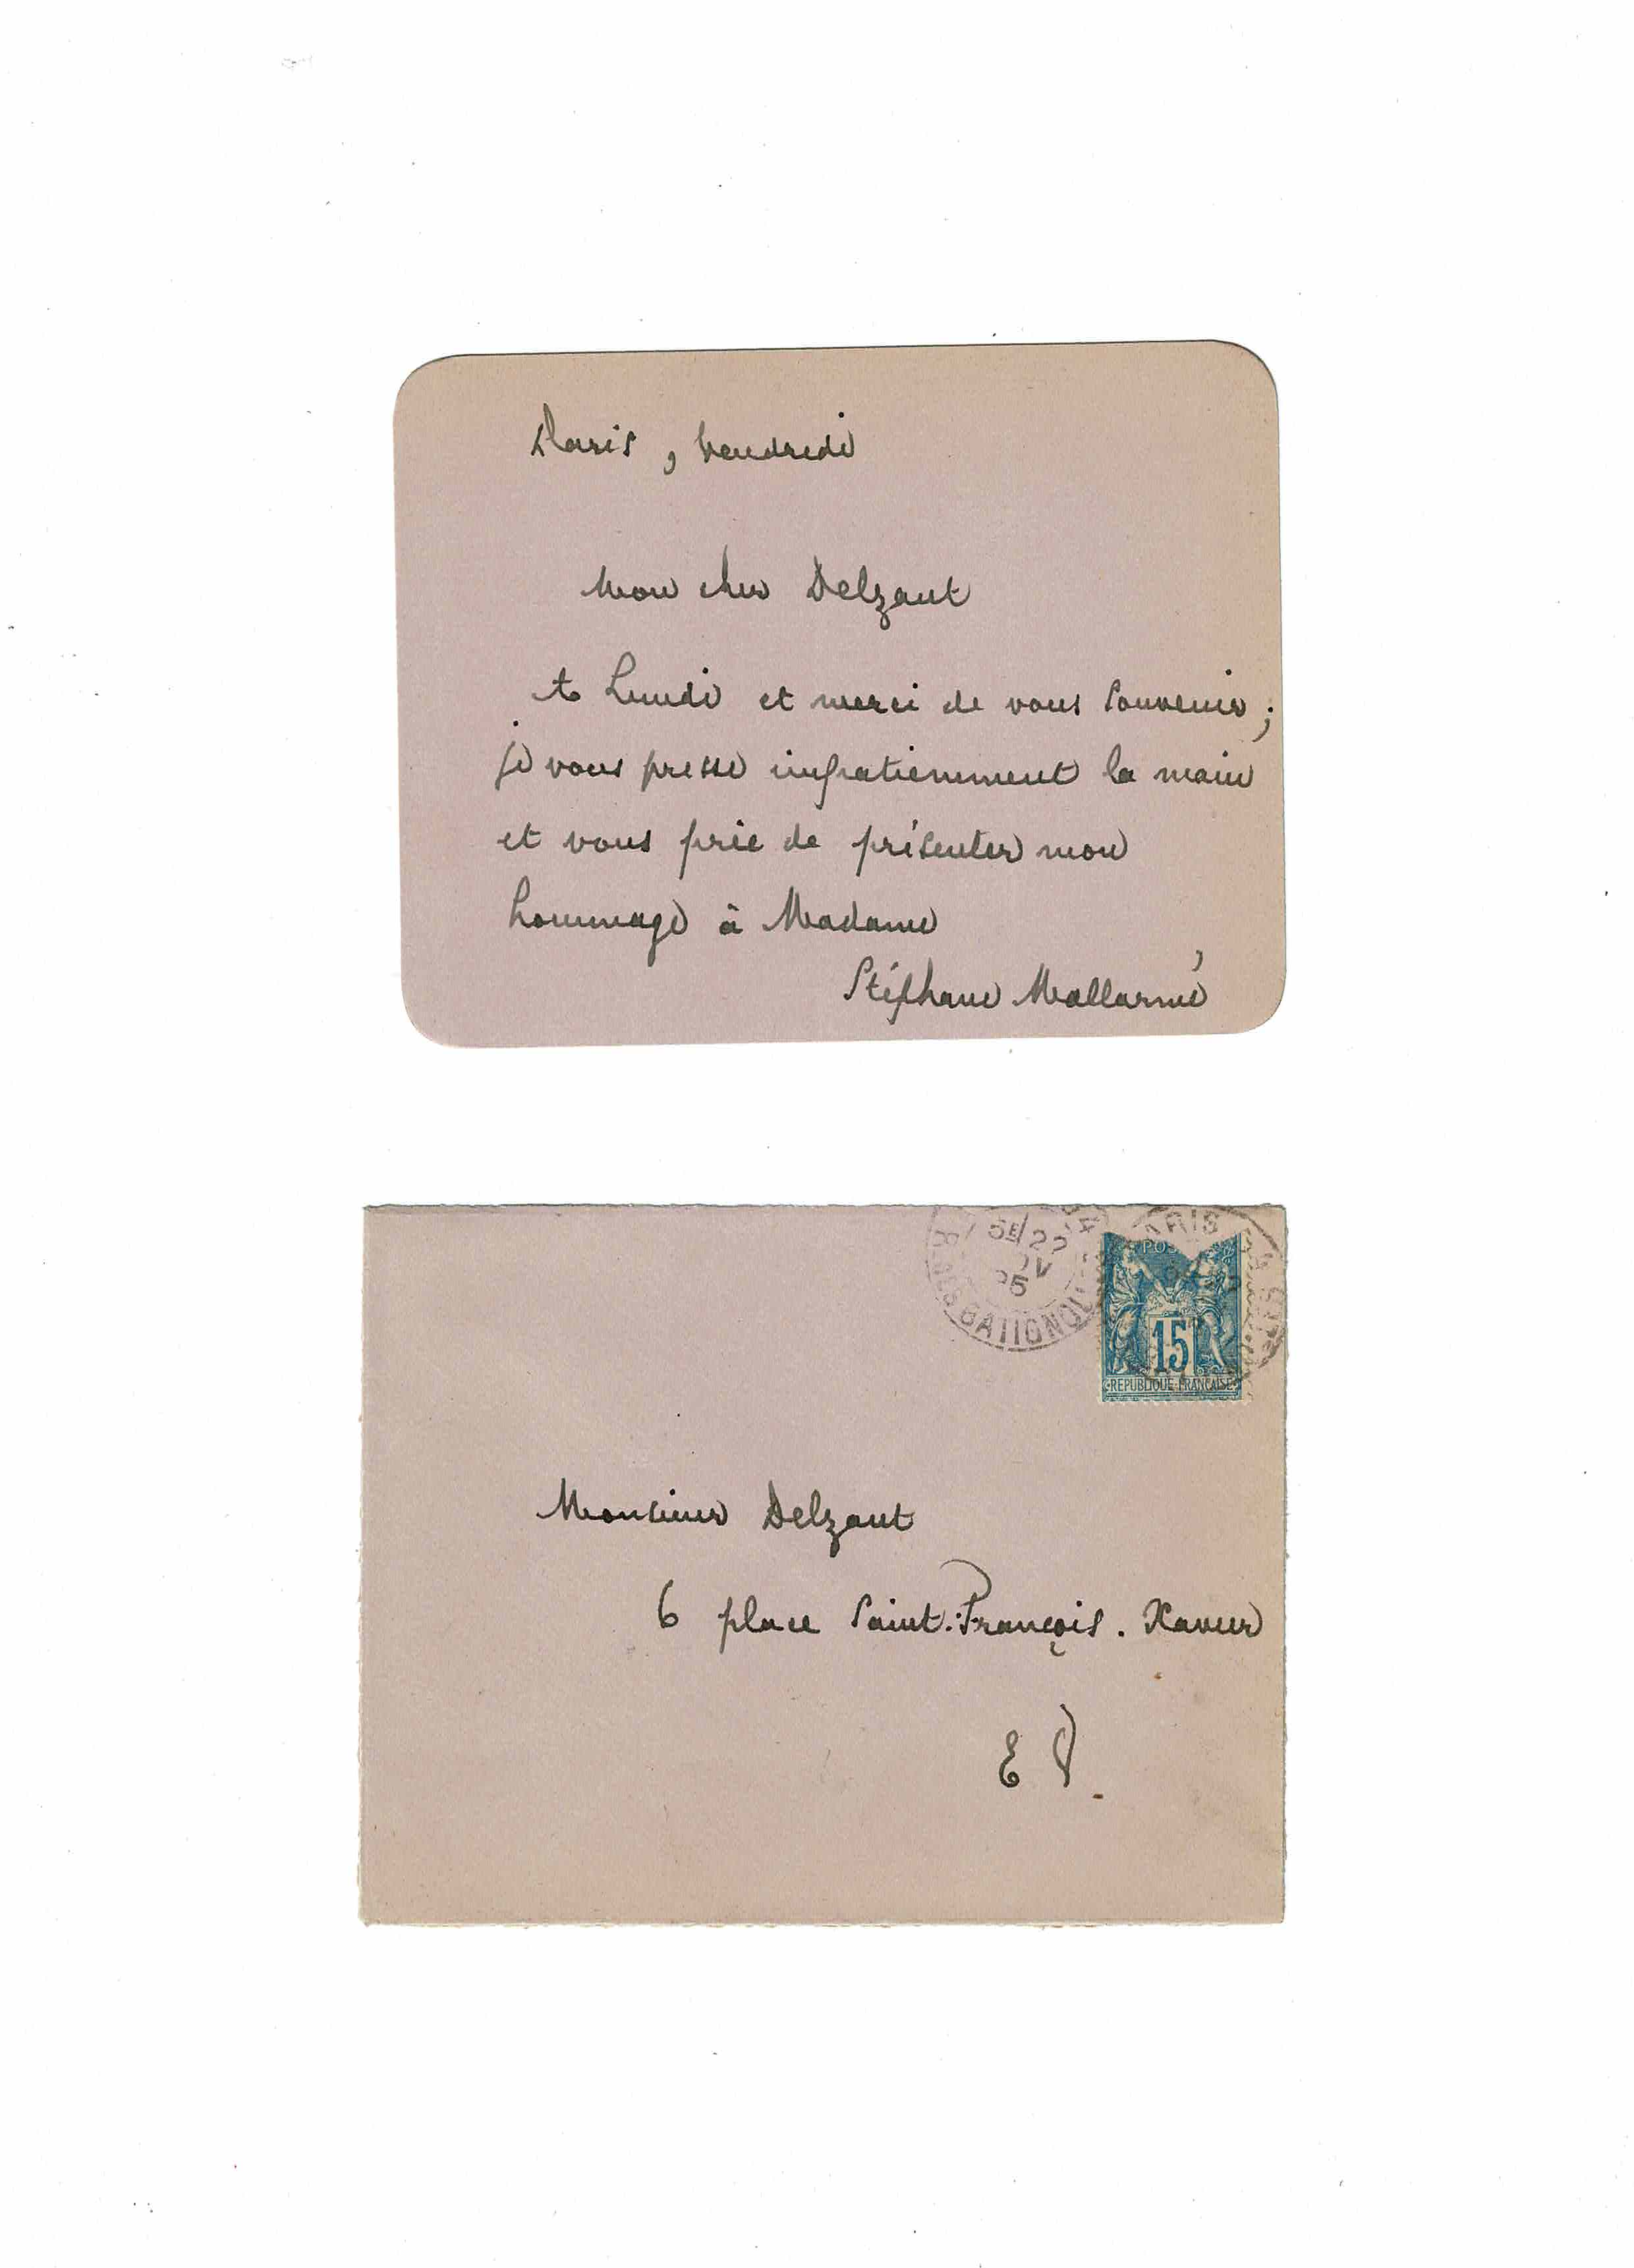 Paris, Vendredi
Mon cher Delzant
A Lundi et merci de vous souvenir;
je vous presse impatiemment la main
et vous prie de présenter mon
hommage à Madame
Stéphane Mallarmé
5E 22
95
R. DES BATIGNOLLES
PARIS
15
REPUBLIQUE FRANÇAISE
Monsieur Delzant
6 place Saint-François-Xavier
E V.